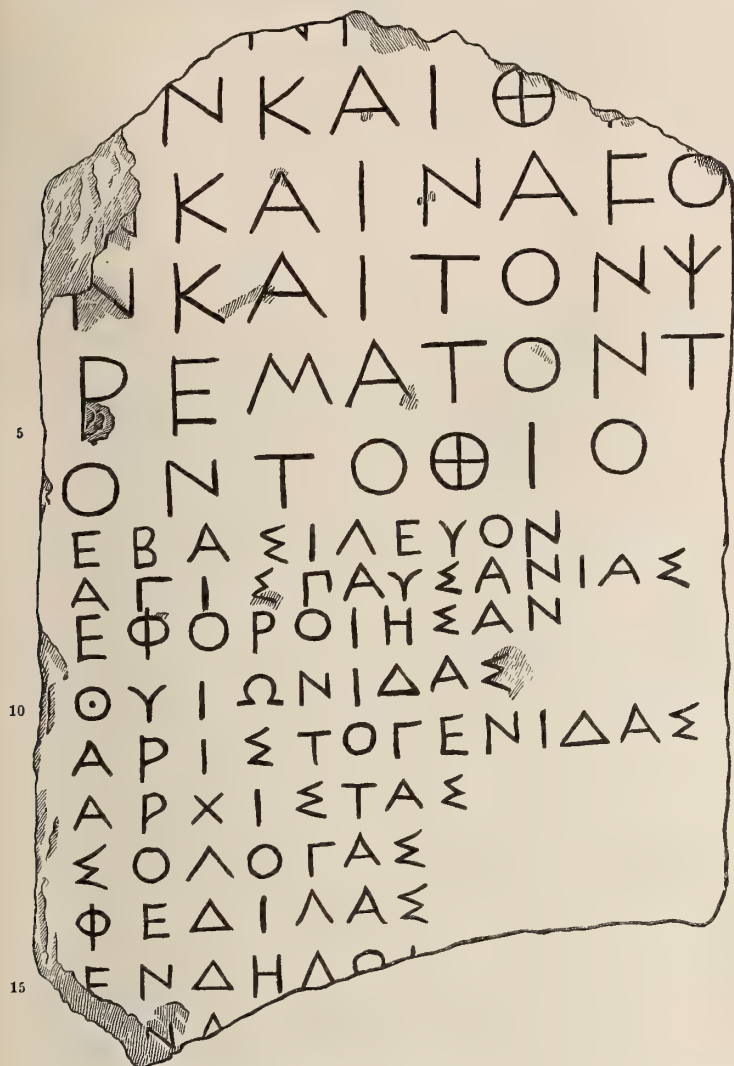 ΝΚΑΙ⊕
ΝΚΑΙΝΑϜΟ
ΝΚΑΙΤΟΝΨ
5 ΡΕΜΑΤΟΝΤ
ΟΝΤΟ⊕ΙΟ
ΕΒΑΣΙΛΕΥΟΝ
ΑΓΙΣΠΑΥΣΑΝΙΑΣ
ΕΦΟΡΟΙΗΣΑΝ
10 ΘΥΙΩΝΙΔΑΣ
ΑΡΙΣΤΟΓΕΝΙΔΑΣ
ΑΡΧΙΣΤΑΣ
ΣΟΛΟΓΑΣ
ΦΕΔΙΛΑΣ
15 ΕΝΔΗΛΩΙ